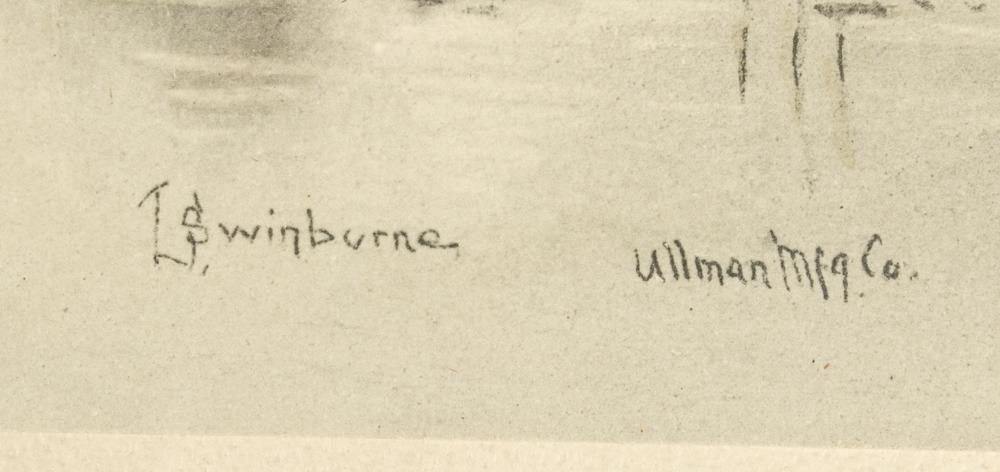 L Swinburne
Ullman Mfg. Co.